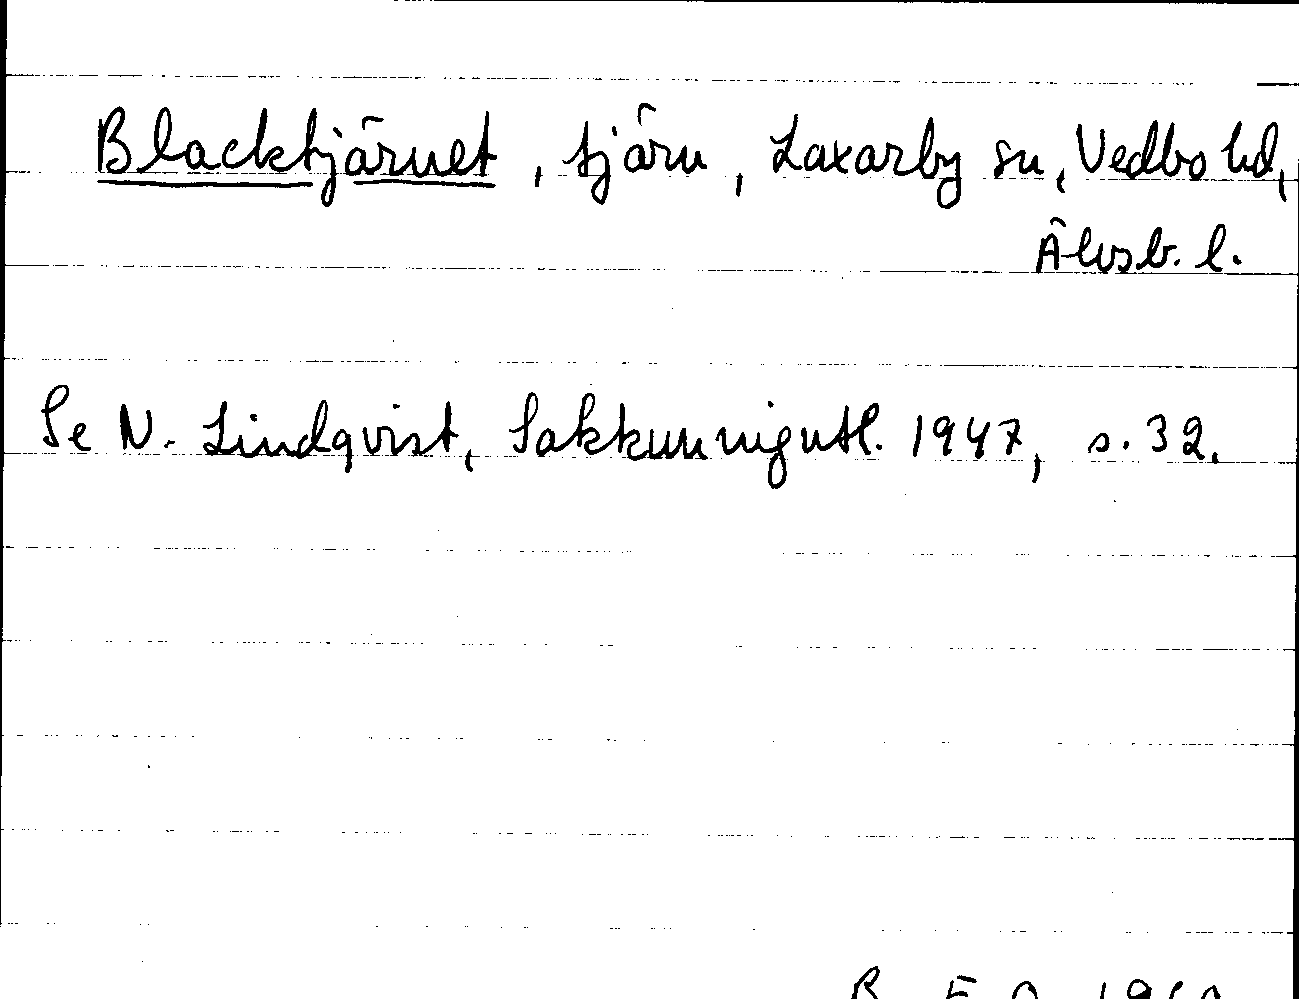 Blacktjärnet, tjärn, Laxarby sn, Vedbo hd,
Älvsb. l.
Se N. Lindqvist, Sakkunnigutl. 1947, s. 32.